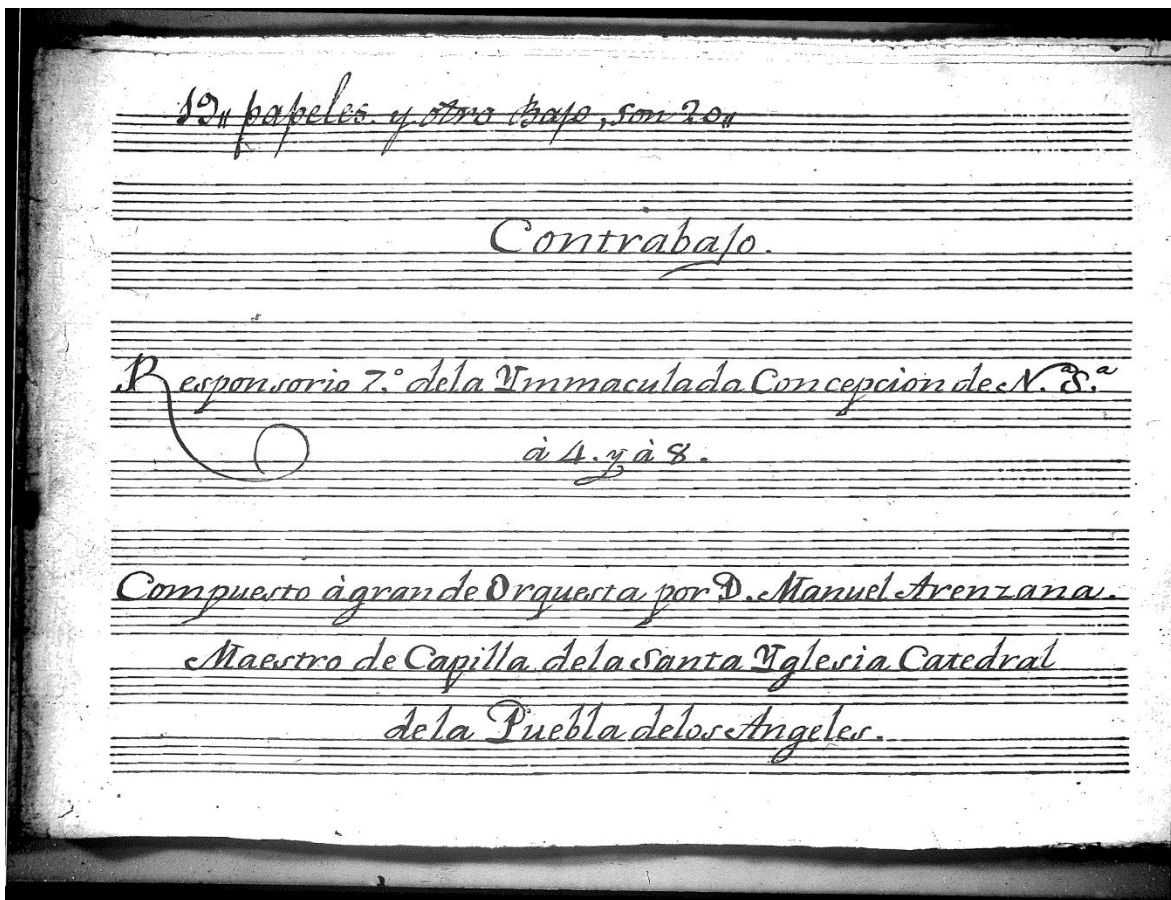 19,, papeles. y otro Bajo, son 20,,
Contrabajo.
Responsorio 7.º dela Ymmaculada Concepcion de N.ª S.ª
à 4. y à 8.
Compuesto à grande Orquesta por D. Manuel Arenzana.
Maestro de Capilla dela Santa Yglesia Catedral
dela Puebla delos Angeles.